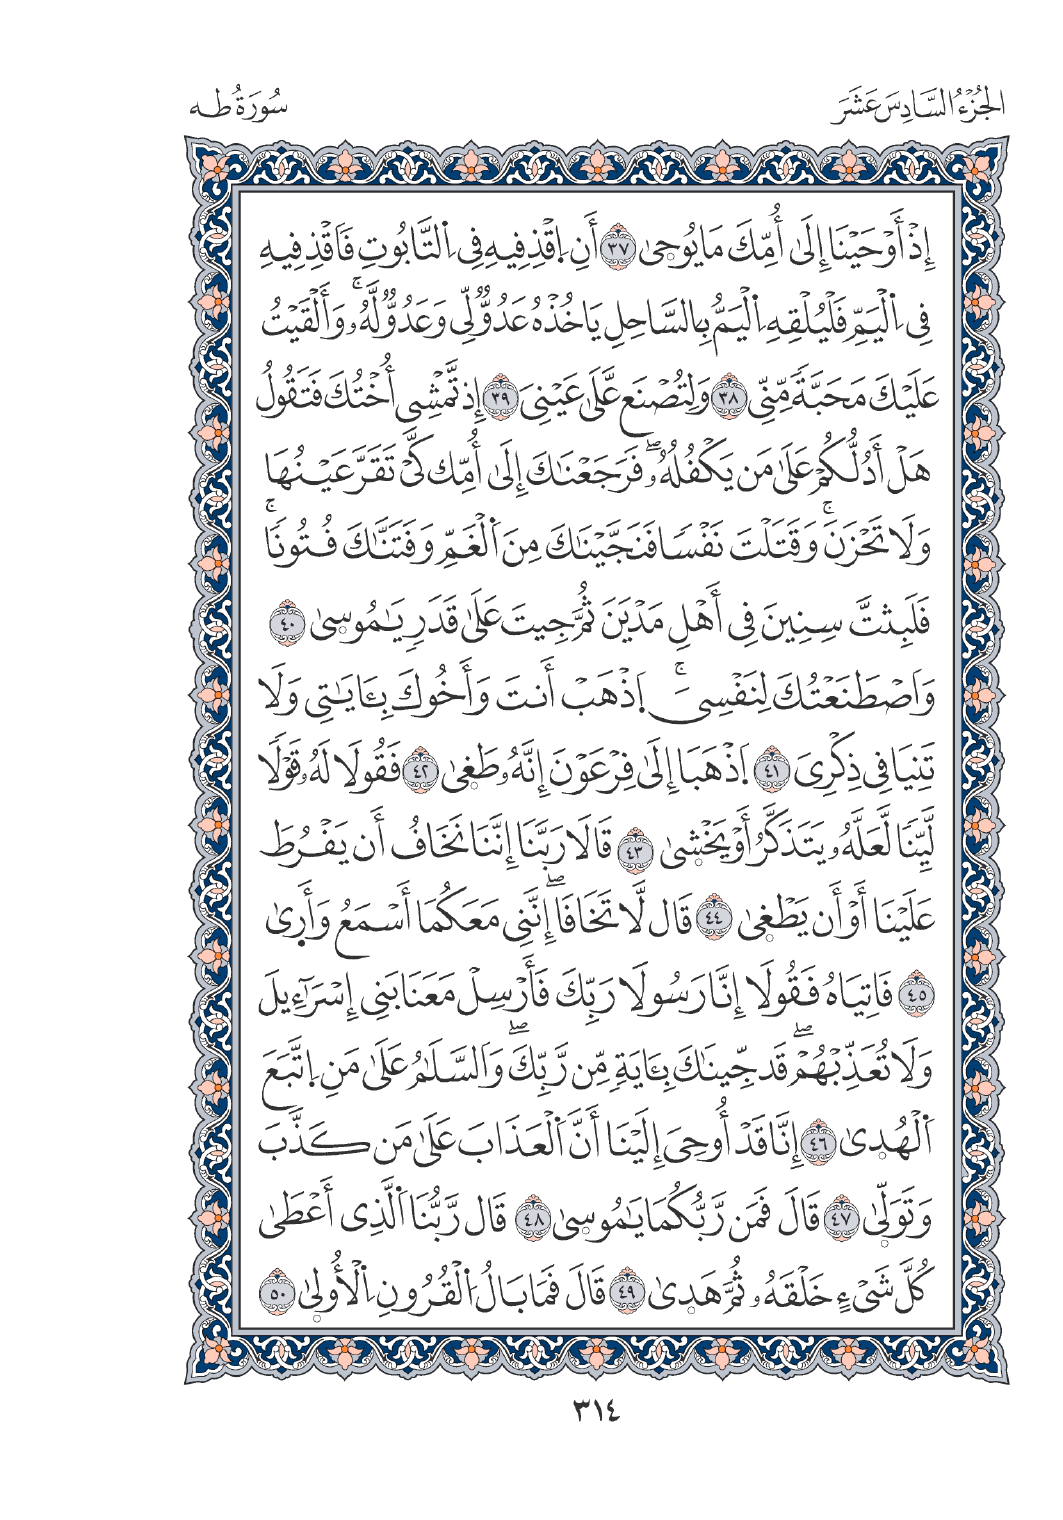 الجُزْءُ السَّادِسَ عَشَرَ
سُورَةُ طه
إِذْ أَوْحَيْنَا إِلَىٰ أُمِّكَ مَا يُوحِىٰ ٣٧ أَنِ اِ۪قْذِفِيهِ فِى اِ۬لتَّابُوتِ فَاقْذِفِيهِ
فِى اِ۬لْيَمِّ فَلْيُلْقِهِ اِ۬لْيَمُّ بِالسَّاحِلِ يَاخُذْهُ عَدُوٌّ لِّى وَعَدُوٌّ لَّهُۥۚ وَأَلْقَيْتُ
عَلَيْكَ مَحَبَّةً مِّنِّى ٣٨ وَلِتُصْنَع عَّلَىٰ عَيْنِىَ ٣٩ إِذ تَّمْشِى أُخْتُكَ فَتَقُولُ
هَلْ أَدُلُّكُمْ عَلَىٰ مَن يَكْفُلُهُۥۖ فَرَجَعْنَٰكَ إِلَىٰ أُمِّك كَّىْ تَقَرَّ عَيْنُهَا
وَلَا تَحْزَنَۚ وَقَتَلْتَ نَفْسًا فَنَجَّيْنَٰكَ مِنَ اَ۬لْغَمِّ وَفَتَنَّٰكَ فُتُونًاۚ
فَلَبِثتَّ سِنِينَ فِى أَهْلِ مَدْيَنَ ثُمَّ جِيتَ عَلَىٰ قَدَرٍ يَٰمُوسِىٰ ٤٠
وَاَصْطَنَعْتُكَ لِنَفْسِىَۚ اَ۪ذْهَبْ أَنتَ وَأَخُوكَ بِـَٔايَٰتِى وَلَا
تَنِيَا فِى ذِكْرِىَ ٤١ اَ۪ذْهَبَا إِلَىٰ فِرْعَوْنَ إِنَّهُۥ طَغِىٰ ٤٢ فَقُولَا لَهُۥ قَوْلًا
لَّيِّنًا لَّعَلَّهُۥ يَتَذَكَّرُ أَوْ يَخْشِىٰ ٤٣ قَالَا رَبَّنَا إِنَّنَا نَخَافُ أَن يَفْرُطَ
عَلَيْنَا أَوْ أَن يَطْغِىٰ ٤٤ قَال لَّا تَخَافَاۖ إِنَّنِى مَعَكُمَا أَسْمَعُ وَأَرِىٰ
٤٥ فَاتِيَاهُ فَقُولَا إِنَّا رَسُولَا رَبِّكَ فَأَرْسِلْ مَعَنَا بَنِى إِسْرَٰٓءِيلَ
وَلَا تُعَذِّبْهُمْۖ قَد جِّينَٰكَ بِـَٔايَةٍ مِّن رَّبِّكَۖ وَالسَّلَٰمُ عَلَىٰ مَنِ اِ۪تَّبَعَ
اَ۬لْهُدِىٰ ٤٦ إِنَّا قَدْ أُوحِىَ إِلَيْنَا أَنَّ اَ۬لْعَذَابَ عَلَىٰ مَن كَذَّبَ
وَتَوَلِّىٰ ٤٧ قَالَ فَمَن رَّبُّكُمَا يَٰمُوسِىٰ ٤٨ قَال رَّبُّنَا اَ۬لَّذِى أَعْطَىٰ
كُلَّ شَىْءٍ خَلْقَهُۥ ثُمَّ هَدِىٰ ٤٩ قَالَ فَمَا بَالُ اُ۬لْقُرُونِ اِ۬لْأُولِىٰ ٥٠
٣١٤